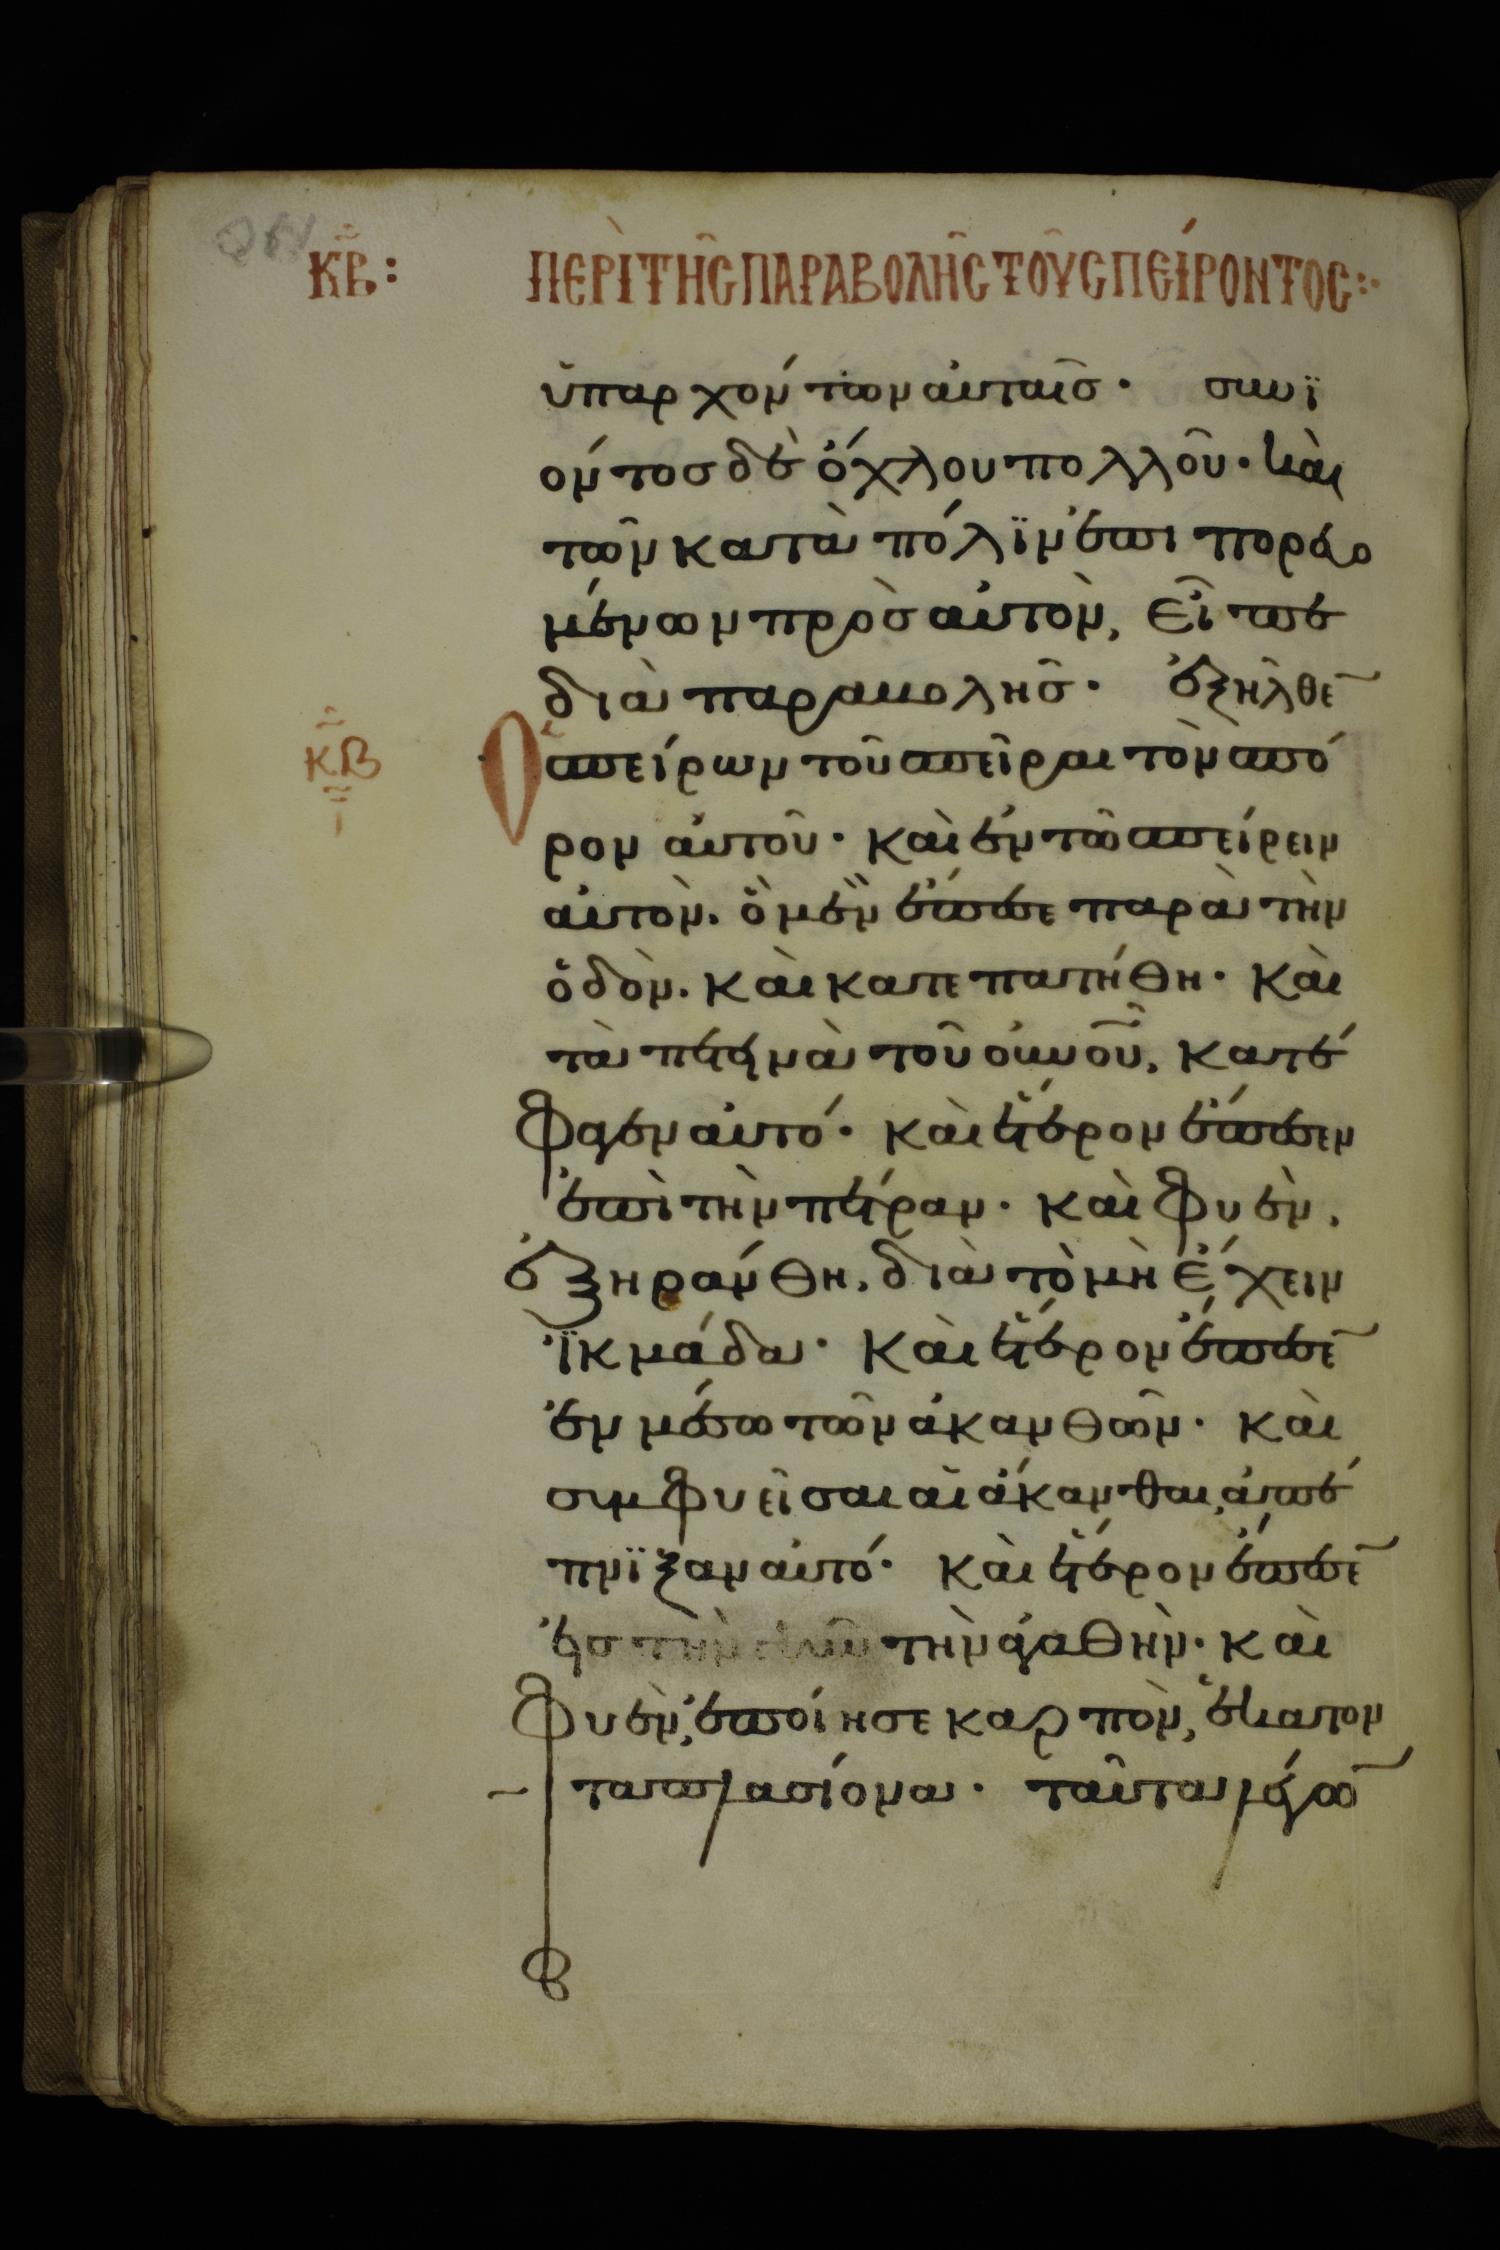 κβ: περὶ τῆς παραβολῆς τοῦ σπείροντος:·
ὑπαρχόντων αὐταῖς· συνϊ
όντος δὲ ὄχλου πολλοῦ· καὶ
τῶν κατὰ πόλϊν ἐπιπορευο
μένων πρὸς αὐτὸν, εἶπε
διὰ παραβολῆς· ἐξῆλθε
κβ ὁ σπείρων τοῦ σπεῖραι τὸν σπό
ρον αὐτοῦ· καὶ ἐν τῶ σπείρειν
αὐτὸν. ὃ μὲν ἔπεσε παρὰ τὴν
ὁδὸν. καὶ κατεπατήθη· καὶ
τὰ πετεινὰ τοῦ οὐνοῦ, κατέ
φαγεν αὐτό· καὶ ἕτερον ἔπεσεν
ἐπὶ τὴν πέτραν· καὶ φυὲν,
ἐξηράνθη, διὰ τὸ μὴ ἔχειν
ἰκμάδα· καὶ ἕτερον ἔπεσε
ἐν μέσω τῶν ἀκανθῶν· καὶ
συμφυεῖσαι αἱ ἄκανθαι, ἀπέ
πνϊξαν αὐτό· καὶ ἕτερον ἔπεσε
εἰς τὴν γῆν τὴν ἀγαθὴν· καὶ
φυὲν, ἐποίησε καρπὸν, ἑκατον
ταπλασίονα· ταῦτα λέγων